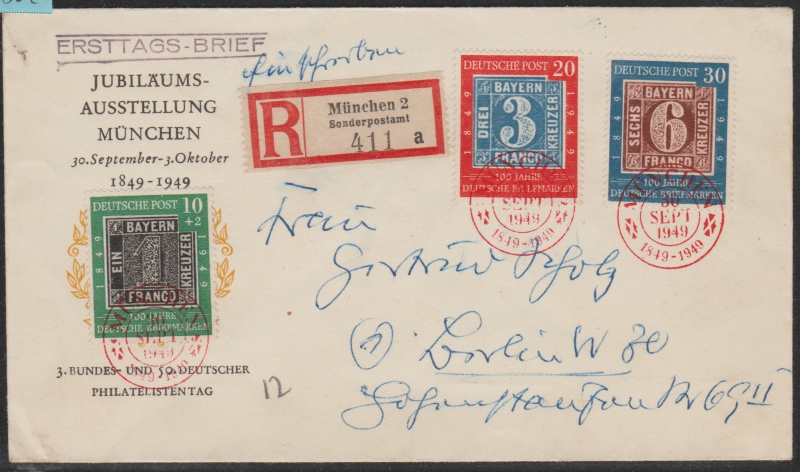 ERSTTAGS-BRIEF
JUBILÄUMS-
AUSSTELLUNG
MÜNCHEN
30. September-3. Oktober
1849-1949
DEUTSCHE POST 10
+2
1849
BAYERN
EIN
1
KREUZER
FRANCO
1949
100 JAHRE
DEUTSCHE BRIEFMARKEN
MÜNCHEN
30
SEPT
1949
1849-1949
3. BUNDES- UND 50. DEUTSCHER
PHILATELISTENTAG
12
Einschreiben
R
München 2
Sonderpostamt
411 a
DEUTSCHE POST 20
1849
BAYERN
DREI
3
KREUZER
FRANCO
1949
100 JAHRE
DEUTSCHE BRIEFMARKEN
MÜNCHEN
SEPT
1949
1849-1949
DEUTSCHE POST 30
1849
BAYERN
SECHS
6
KREUZER
FRANCO
1949
100 JAHRE
DEUTSCHE BRIEFMARKEN
MÜNCHEN
30
SEPT
1949
1849-1949
Frau
Gertrud Scholz
(1) Berlin W 30
Hohenstaufenstr 69 II